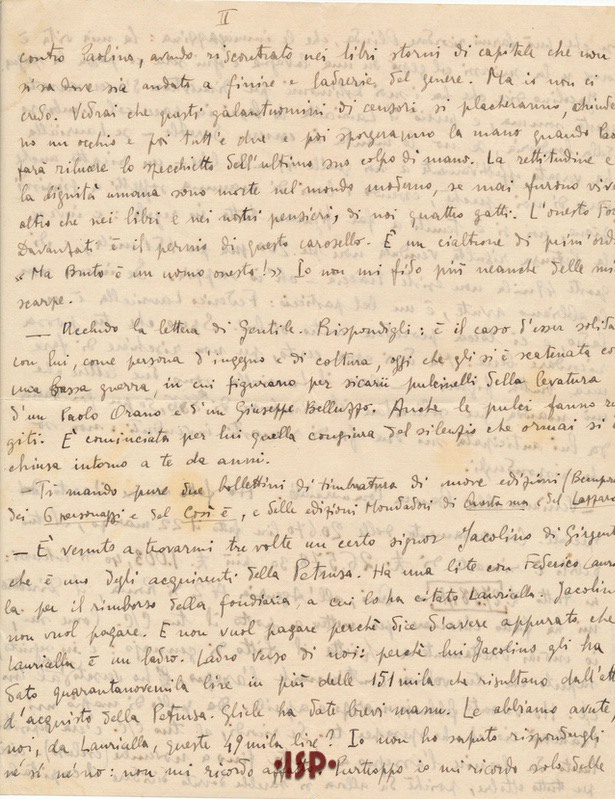 II
contro Paolino, avendo riscontrato nei libri storni di capitale che non
si sa dove sia andato a finire e ladrerie del genere. Ma io non ci
credo. Vedrai che questi galantuomini di censori si placheranno, chiude
no un occhio e poi tutt'e due e poi sporgeranno la mano quando Pao
farà rilucere lo specchietto dell'ultimo suo colpo di mano. La rettitudine e
la dignità umana sono morte nel mondo moderno, se mai furono vive
altro che nei libri e nei nostri pensieri, di noi quattro gatti. L'onesto
Davanzati è il pernio di questo carosello. È un cialtrone di prim'ordi
« Ma Bruto è un uomo onesto!» Io non mi fido più neanche delle mi
scarpe.
— Accludo la lettera di Gentile. Rispondigli: è il caso d'esser solida
con lui, come persona d'ingegno e di coltura, oggi che gli si è scatenata co
una bassa guerra, in cui figurano per sicarii pulcinelli della levatura
d'un Paolo Orano e d'un Giuseppe Belluzzo. Anche le pulci fanno
giti. È cominciata per lui quella congiura del silenzio che ormai si è
chiusa intorno a te da anni.
— Ti mando pure due bollettini di timbratura di nuove edizioni (Bempora
dei 6 personaggi e del Così è, e delle edizioni Mondadori di Questa sera e del Lazzaro
— È venuto a trovarmi tre volte un certo signor Jacolino di Girgent
che è uno degli acquirenti della Petrusa. Ha una lite con Federico Lauri
la per il rimborso della fondiaria, a cui lo ha citato Lauriella. Jacolino
non vuol pagare. E non vuol pagare perchè dice d'avere appurato che
Lauriella è un ladro. Ladro verso di noi: perchè lui Jacolino gli ha
dato quarantanovemila lire in più delle 151 mila che risultano dall'att
d'acquisto della Petrusa. Gliele ha date brevi manu. Le abbiamo avute,
noi, da Lauriella, queste 49 mila lire? Io non ho saputo rispondergli
nè sì nè no: non mi ricordo Purtroppo io mi ricordo solo delle
·ISP·